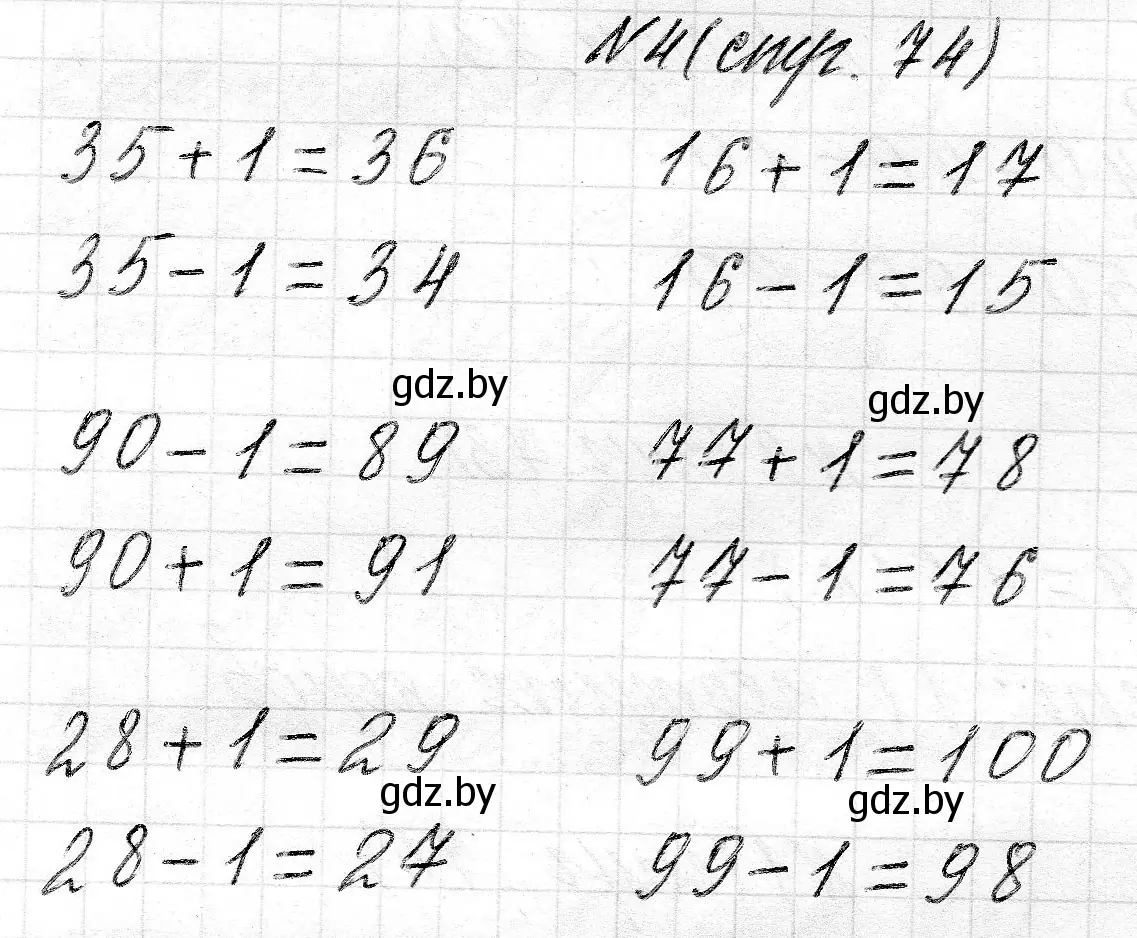 N4(стр. 74)
35+1=36 16+1=17
35-1=34 16-1=15
gdz.by gdz.by
90-1=89 77+1=78
90+1=91 77-1=76
28+1=29 99+1=100
gdz.by gdz.by
28-1=27 99-1=98